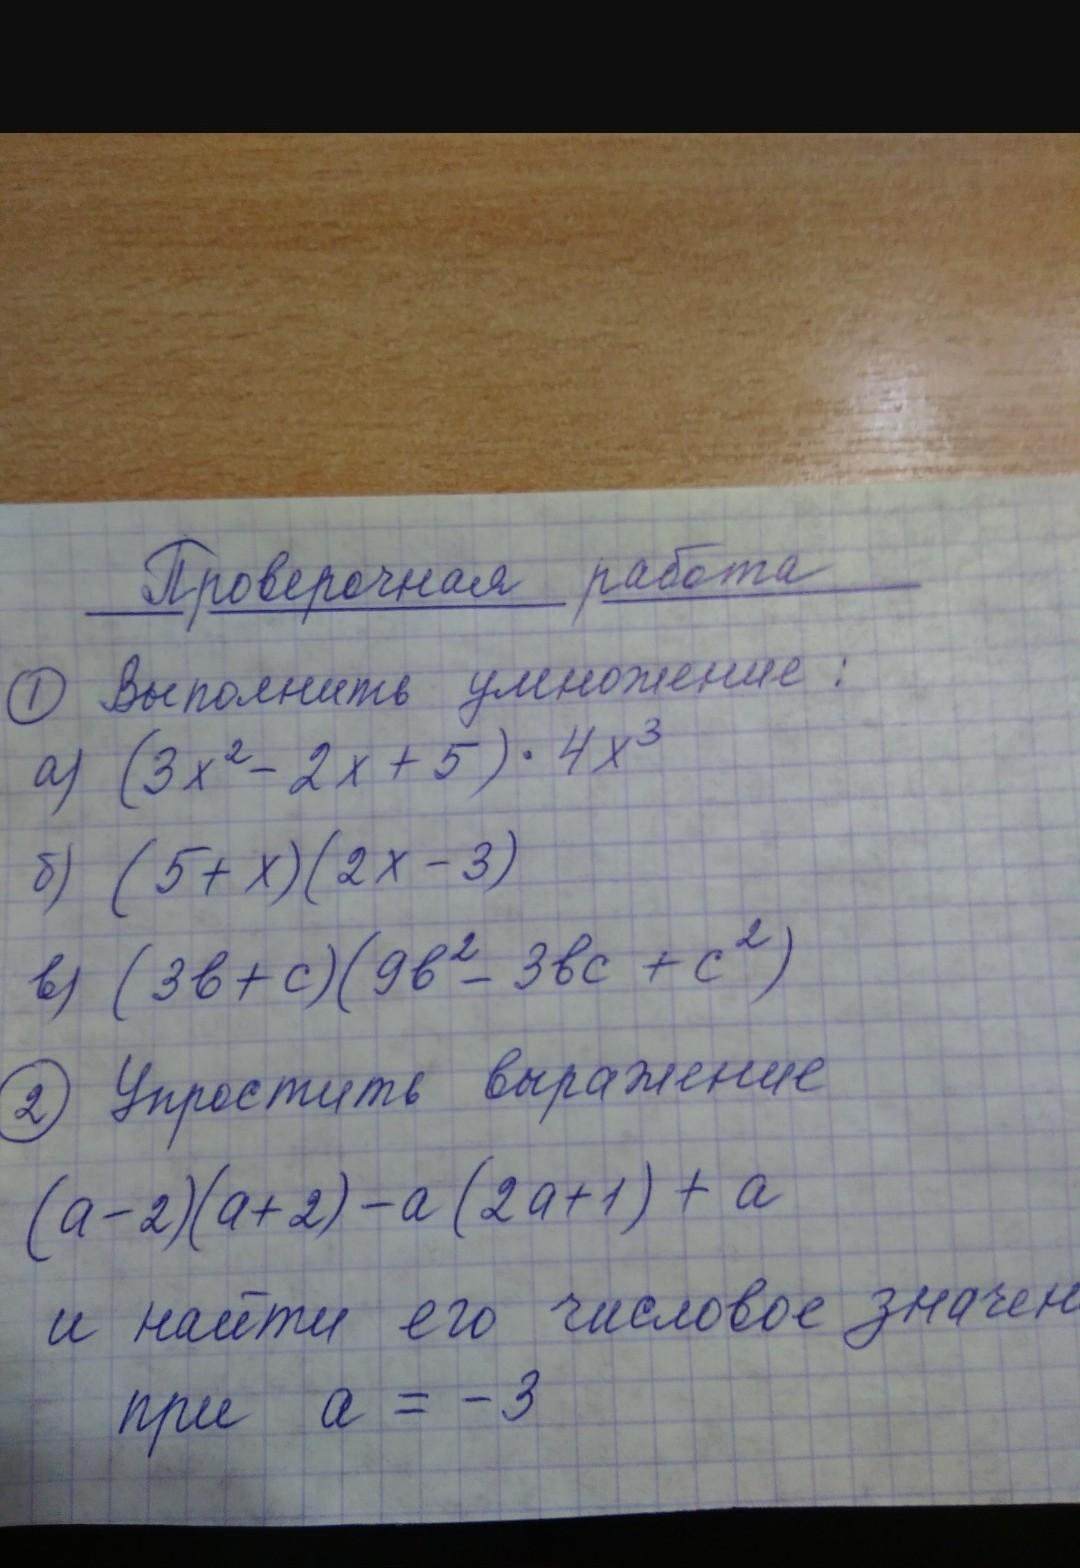 Проверочная работа
① Выполнить умножение:
а) (3x² - 2x + 5) · 4x³
б) (5 + x)(2x - 3)
в) (3в + с)(9в² - 3вс + с²)
② Упростить выражение
(а - 2)(а + 2) - а (2а + 1) + а
и найти его числовое значен
при а = -3